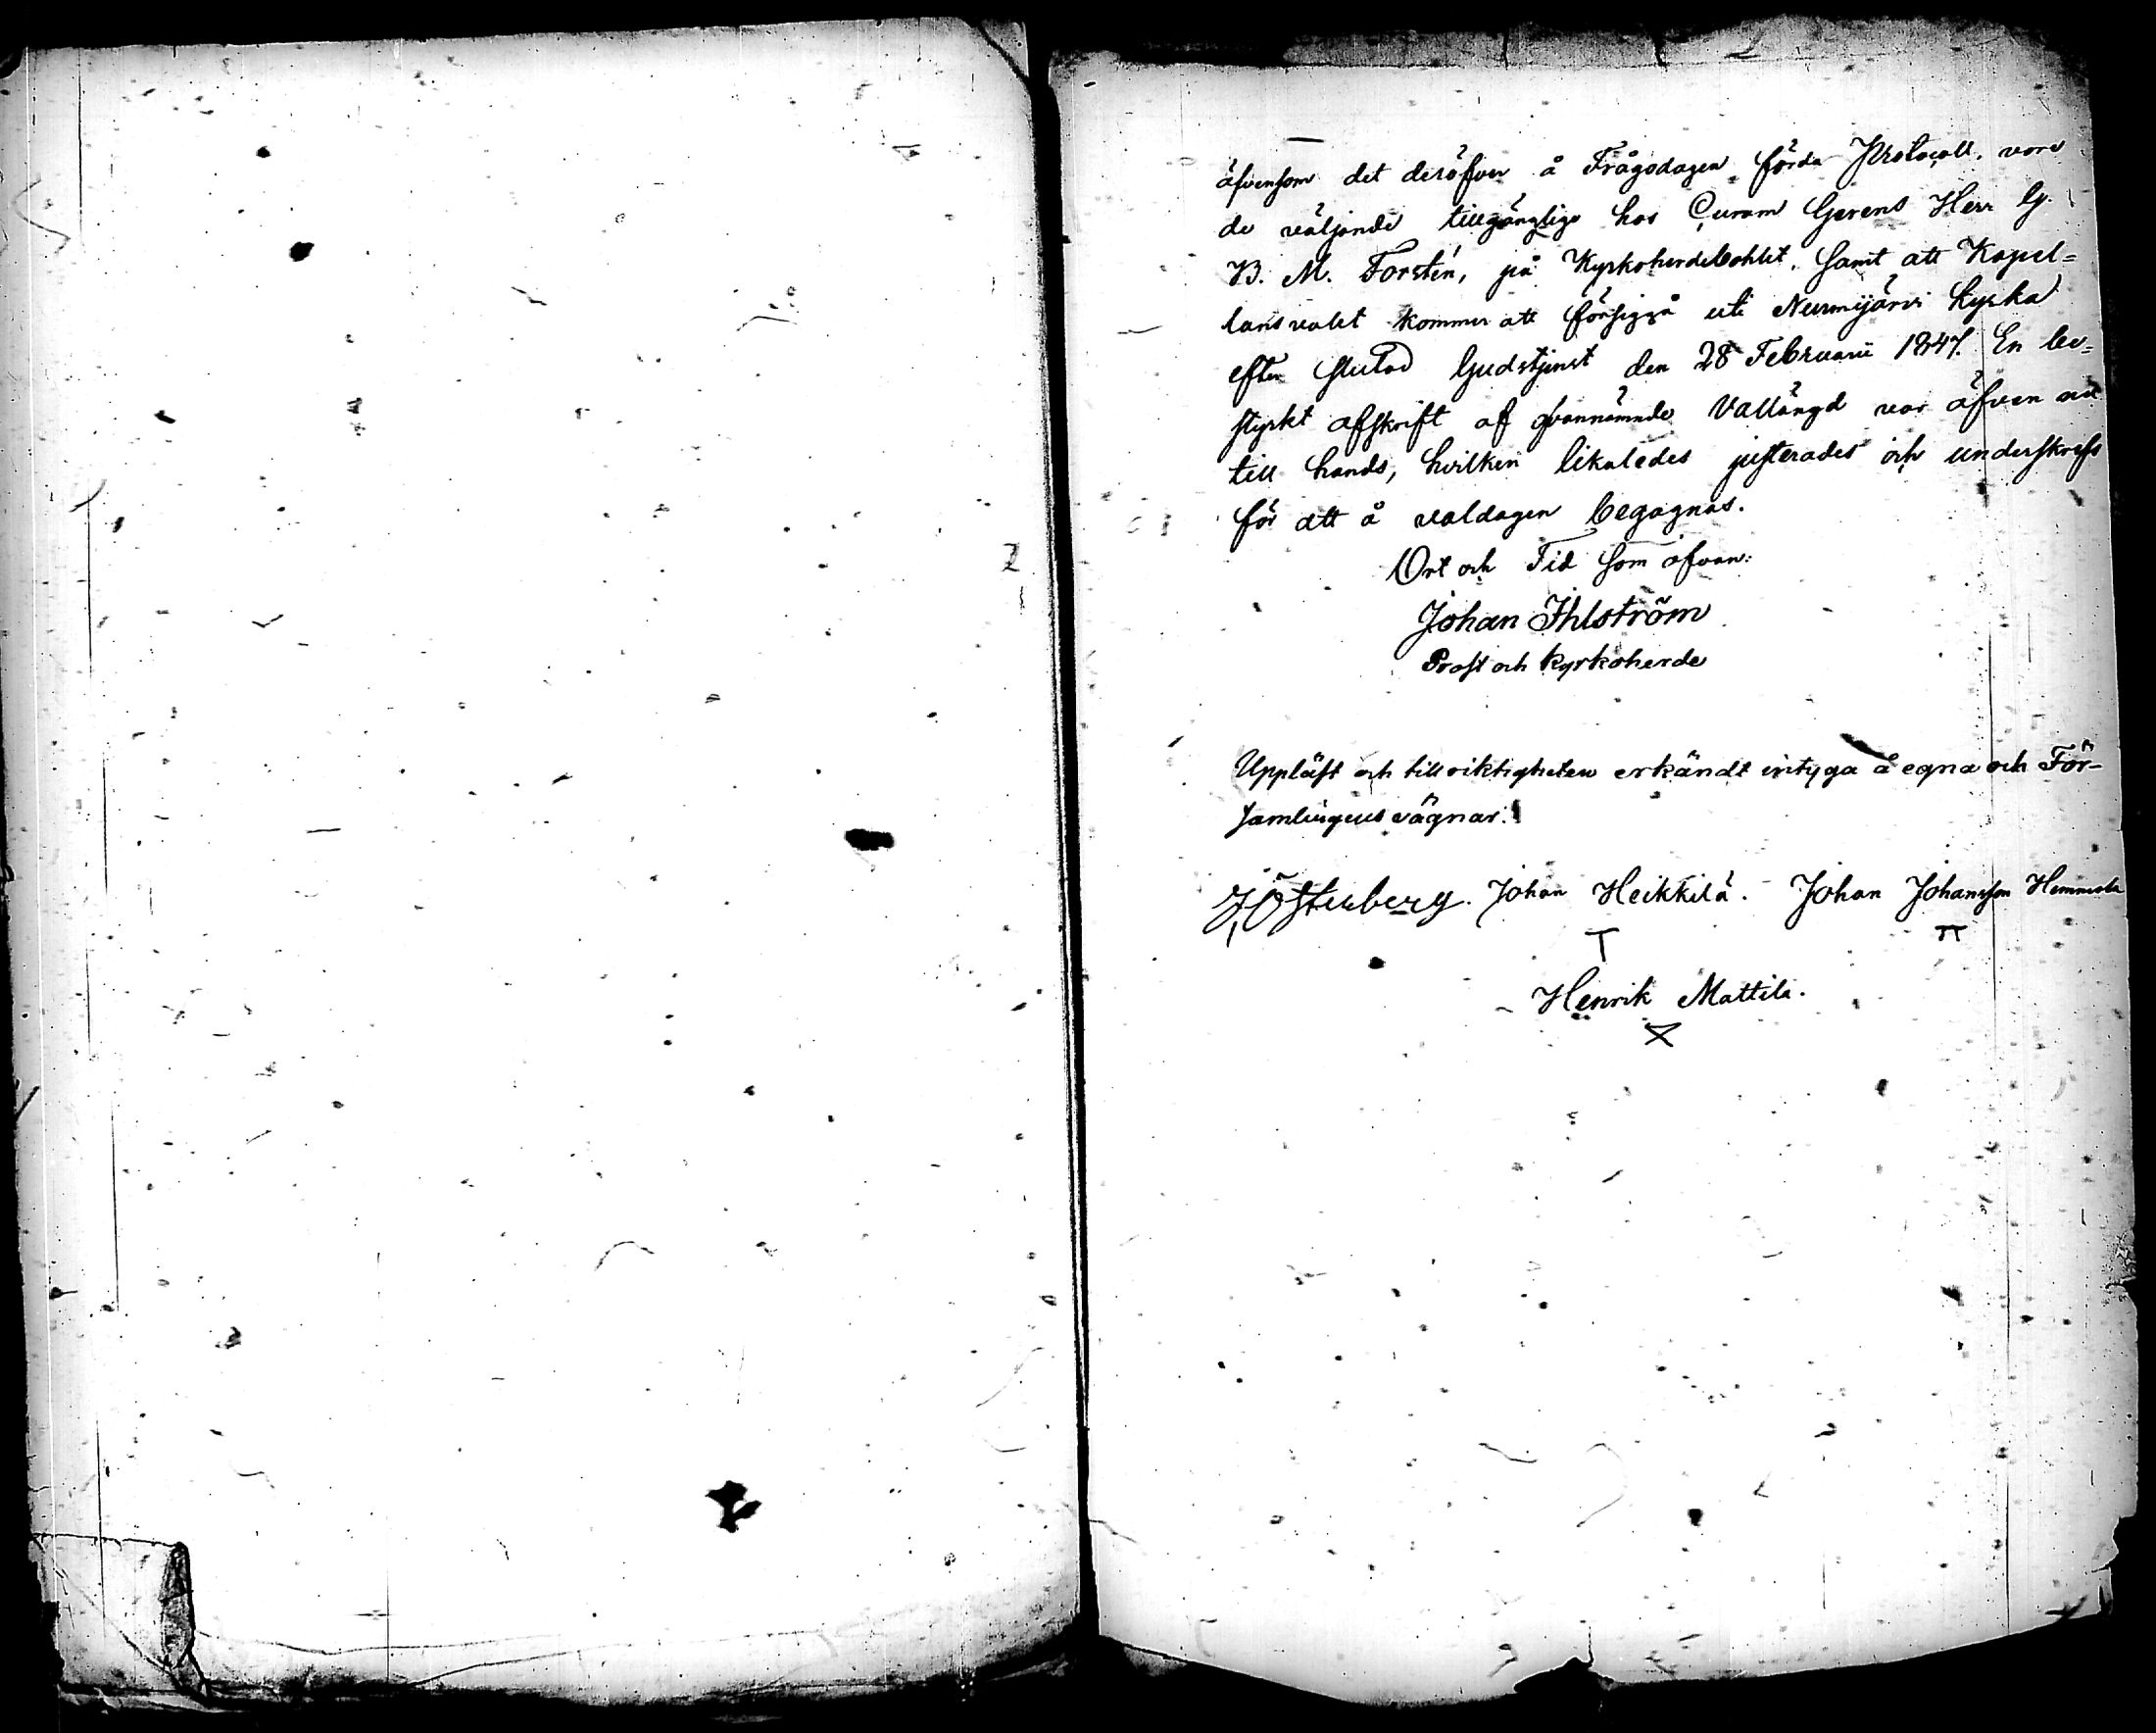 äfvensom det deröfver å Frågodagen förda Protocoll, vore
de väljande tillgänglige hos Curam Gerens Herr G.
B. M. Forstén, på Kyrkoherdebohlet, samt att Kapel=
lansvalet kommer att försiggå uti Nurmijärvi Kyrka
efter slutad Gudstjenst den 28 Februarii 1847. En be=
styrkt afskrift af ofvannämnde Vallängd var äfven nu
till hands, hvilken likaledes justerades och underskrefs
för att å valdagen begagnas.
Ort och Tid som ofvan:
Johan Ihlström
Prost och Kyrkoherde
Uppläst och till riktigheten erkändt intyga å egna och För-
samlingens vägnar.
J Österberg. Johan Heikkilä. Johan Johansson
Henrik Mattila.